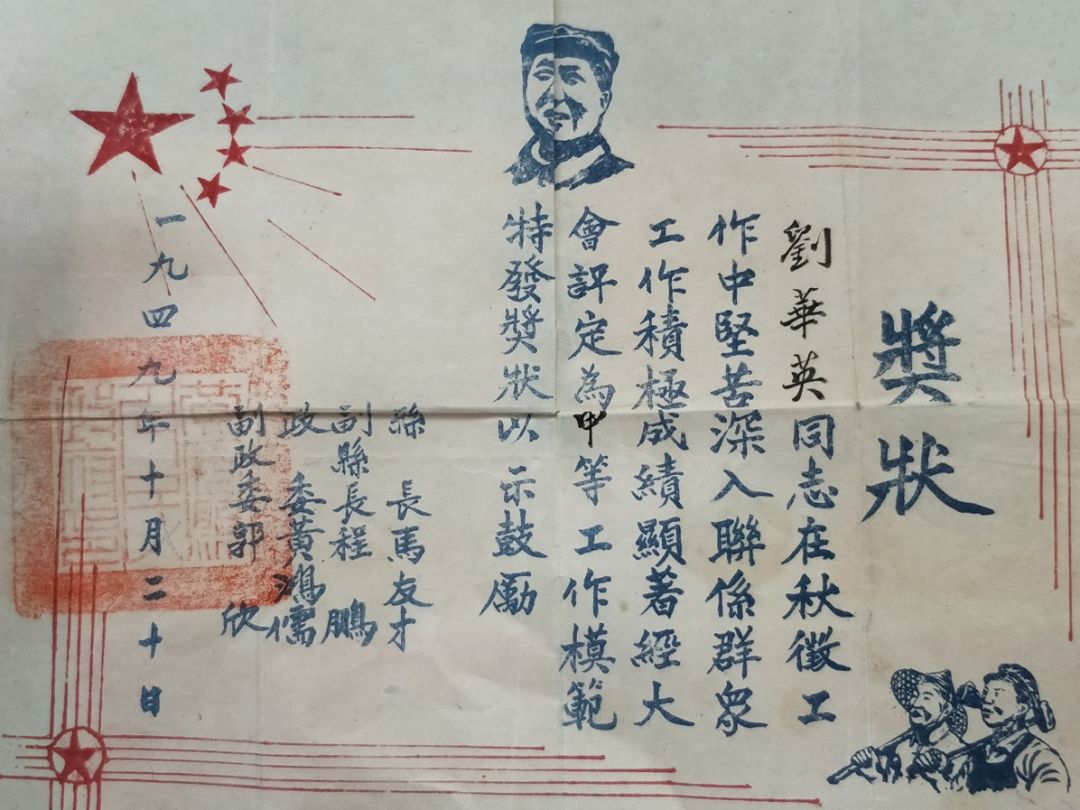 獎狀
劉華英同志在秋徵工
作中堅苦深入聯係群眾
工作積極成績顯著經大
會評定為甲等工作模範
特發獎狀以示鼓勵
縣長馬友才
副縣長程鵬
政委黃鴻儒
副政委郭欣
一九四九年十月二十日